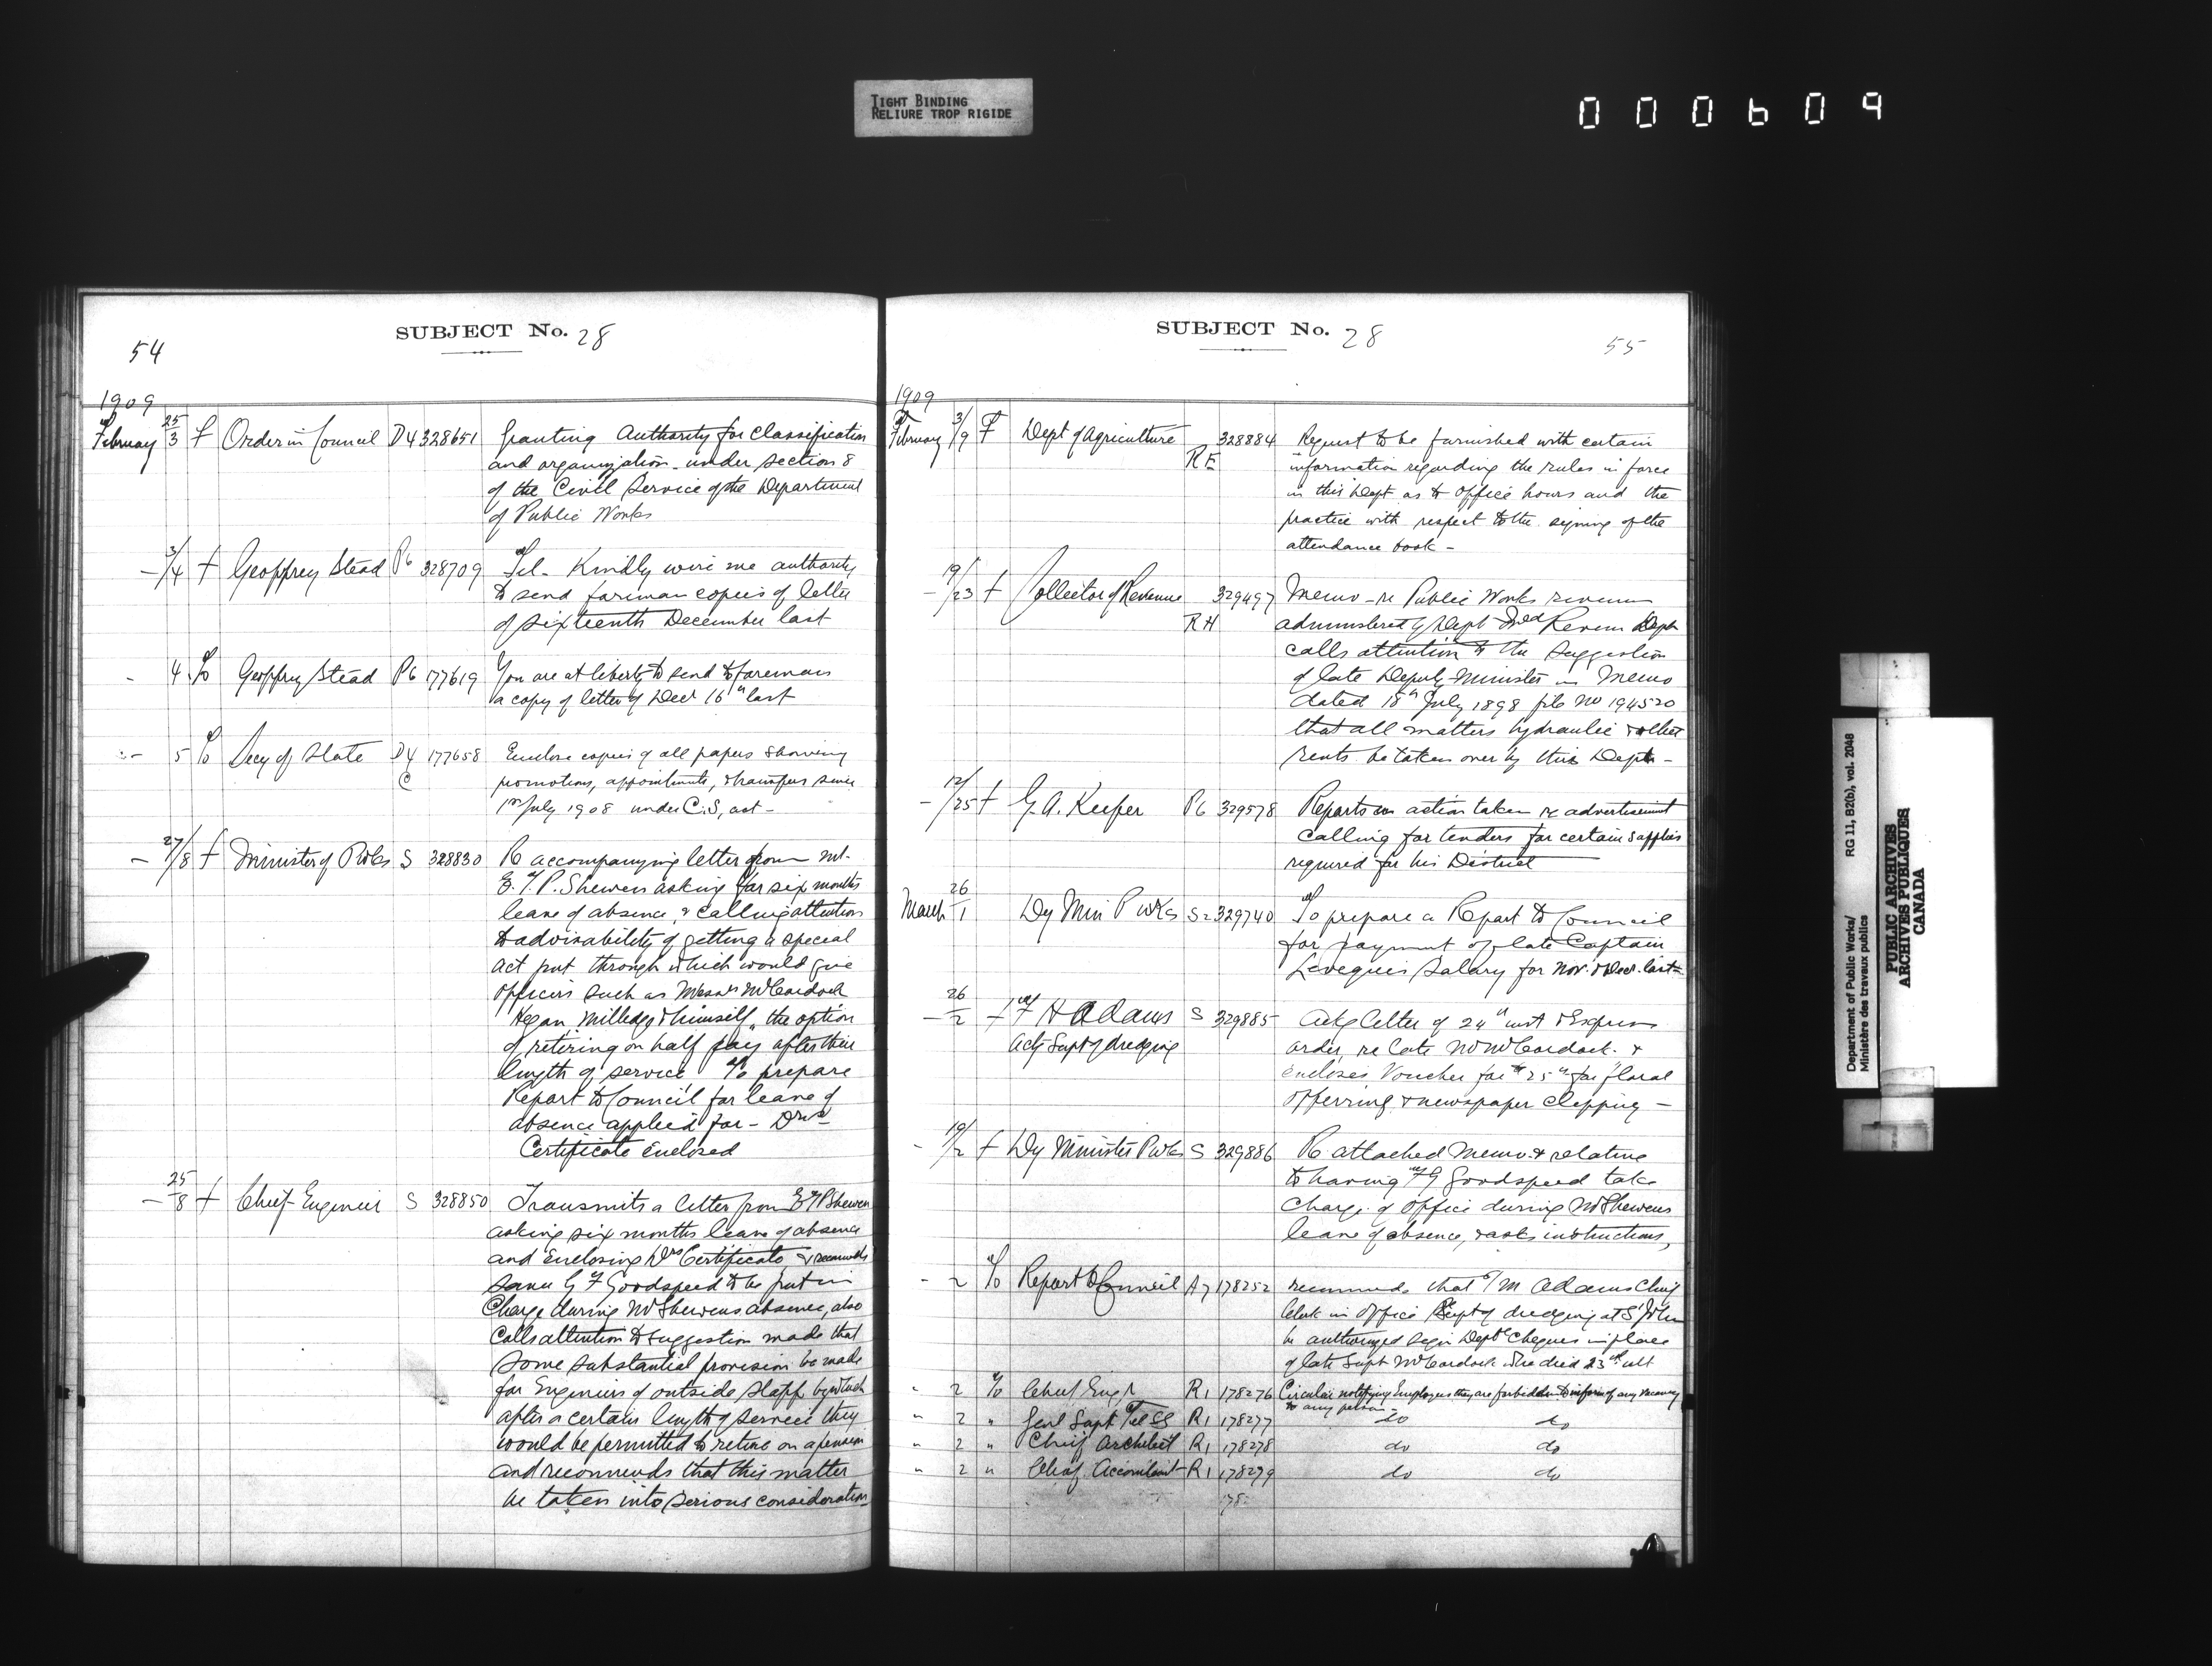 TIGHT BINDING
RELIURE TROP RIGIDE
000609
54
SUBJECT No. 28
1909
February 25/3 f Order in Council D4 328651 Granting Authority for Classification
and organization under section 8
of the Civil Service of the Department
of Public Works
- 3/4 f Geoffrey Stead P6 328709 Tel- Kindly wire me authority
to send foreman copies of letter
of sixteenth December last
- 4 To Geoffrey Stead P6 177619 You are at liberty to send to foreman
a copy of letter of Decr 16th last
- 5 To Secy of State D4 177658 Enclose copies of all papers showing
C promotions, appointments, & transfers since
1st July 1908 under C.S. act -
- 27/8 f Minister of P Wks S 328830 Re accompanying letter from Mr.
E. T. P. Shewen asking for six months
leave of absence, & calling attention
to advisability of getting a special
act put through which would give
officers such as Messrs McCordock
Hegan, Milledge & himself, the option
of retiring on half pay after their
length of service To prepare
Report to Council for leave of
absence applied for - Drs
Certificate Enclosed
- 25/8 f Chief Engineer S 328850 Transmits a letter from E T P Shewen
asking six months leave of absence
and Enclosing Drs Certificate &
G F Goodspeed to be put in
Charge during Mr Shewens absence, also
Calls attention to suggestion made that
Some substantial provision be made
for Engineers of outside staff by which
after a certain length of service they
would be permitted to retire on a pension
and recommends that this matter
be taken into serious consideration
SUBJECT No. 28
55
1909
February 3/9 F Dept of Agriculture 328884 Request to be furnished with certain
RE information regarding the rules in force
in this Dept as to office hours and the
practice with respect to the signing of the
attendance book -
- 19/23 f Collector of Revenue 329497 Memo - re Public Works revenue
RH administered by Dept Inld Revenue Dept
calls attention to the suggestion
of late Deputy Minister in Memo
dated 18th July 1898 file No 194520
that all matters hydraulic & other
rents be taken over by this Dept -
- 12/25 f G. A. Keefer P6 329578 Reports on action taken re advertisement
calling for tenders for certain supplies
required for his District
March 26/1 Dy Min P Wks S 329740 To prepare a Report to Council
for payment of late Captain
Leveques Salary for Nov. & Dec. last
- 26/2 f F H Adams S 329885 Ackg letter of 24th inst & Express
Actg Supt of dredging order, re late Mr McCordock. &
encloses Voucher for $25 for floral
offerring & newspaper clipping -
- 19/2 f Dy Minister P Wks S 329886 Re attached Memo & relative
to having F G Goodspeed take
Charge of Office during Mr Shewens
leave of absence, & asks instructions,
- 2 To Report to Council A7 178252 recommends that M Adams Chief
Clerk in office Supt of dredging at St John
be authorized sign Deptl Cheques in place
of late Supt McCordock who died 23rd ult
- 2 To Chief Engr R1 178276 Circular notifying Employees they are forbidden to inform of any vacancy
to any person -
" 2 " Genl Supt Tel SS R1 178277 do do
" 2 " Chief Architect R1 178278 do do
" 2 " Chief Accountant R1 178279 do do
Department of Public Works/
Ministère des travaux publics
RG 11, B2(b), vol. 2048
PUBLIC ARCHIVES
ARCHIVES PUBLIQUES
CANADA